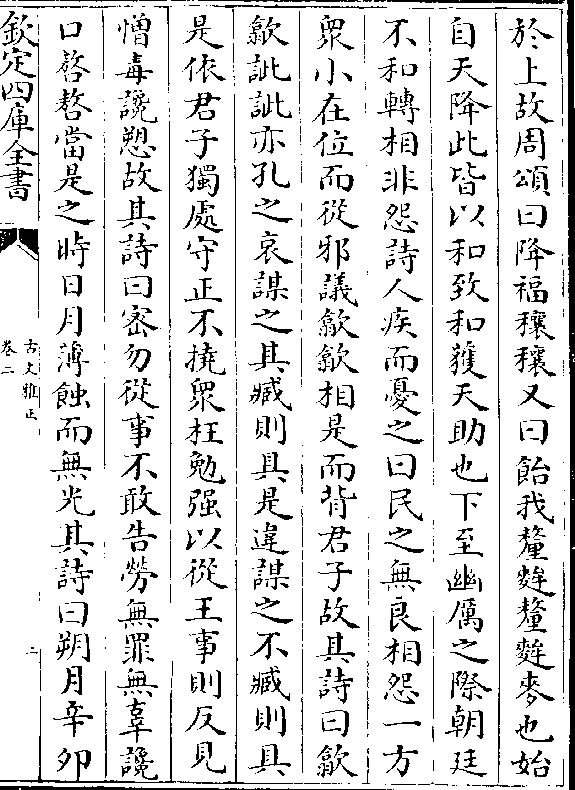 於上故周頌曰降福穰穰又曰飴我釐麰釐麰麥也始
自天降此皆以和致和獲天助也下至幽厲之際朝廷
不和轉相非怨詩人疾而憂之曰民之無良相怨一方
衆小在位而從邪議歙歙相是而背君子故其詩曰歙
歙訿訿亦孔之哀謀之其臧則具是違謀之不臧則具
是依君子獨處守正不撓衆枉勉强以從王事則反見
憎毒讒愬故其詩曰密勿從事不敢告勞無罪無辜讒
口嗸嗸當是之時日月薄蝕而無光其詩曰朔月辛卯
欽定四庫全書
古文雅正
卷二
二